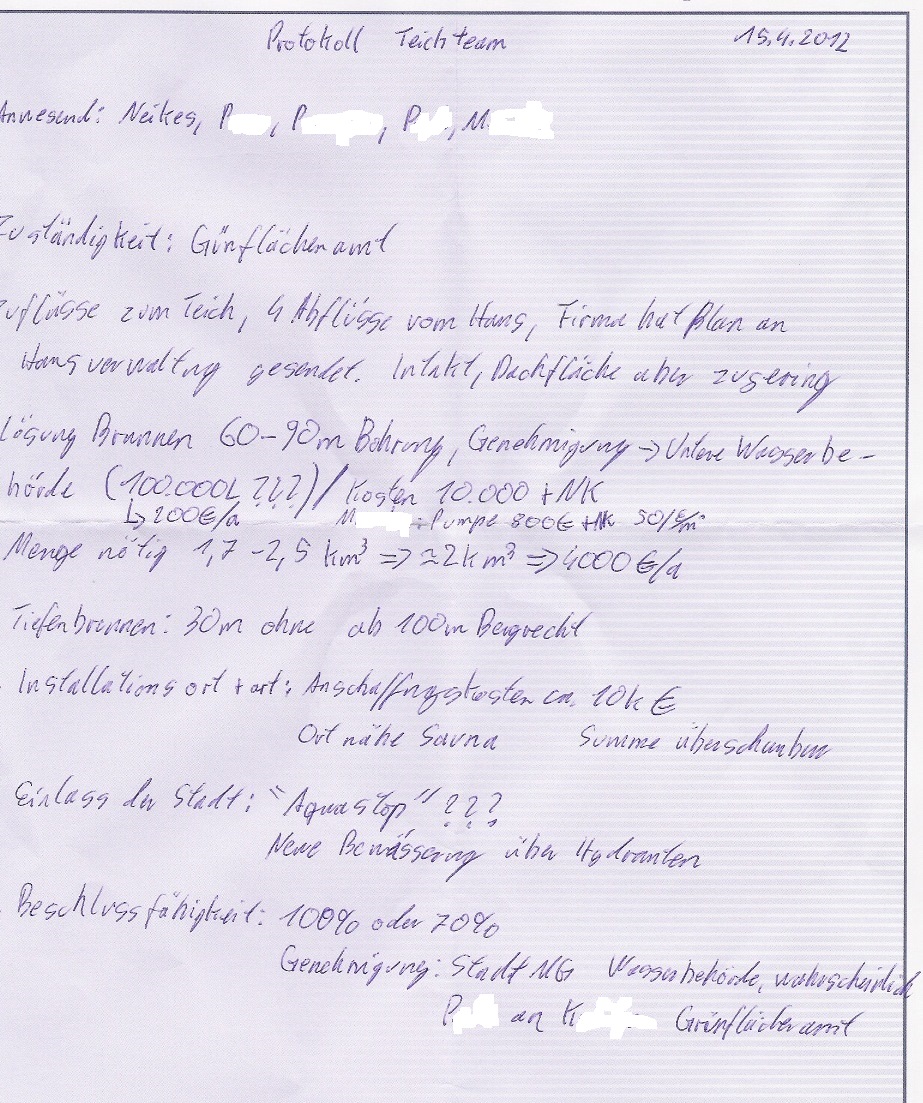 Protokoll Teichteam 15.4.2012
Anwesend: Neikes, P , P , P , M
Zuständigkeit: Günflächenamt
Zuflüsse zum Teich, 4 Abflüsse vom Haus, Firma hat Plan an
Hausverwaltung gesendet. Intakt, Dachfläche aber zu gering
Lösung Brunnen 60-90m Bohrung, Genehmigung → Untere Wasserbe-
hörde (100.000L ???)/ Kosten 10.000 + NK
↳ 200€/a M : Pumpe 800€ + NK
Menge nötig 1,7 - 2,5 km³ => ≈2km³ => 4000€/a
Tiefenbrunnen: 30m ohne ab 100m Bergrecht
Installationsort + art: Anschaffungskosten ca. 10k €
Ort nähe Sauna Summe überschaubar
Einlass der Stadt: "Aquastop" ???
Neue Bewässerung über Hydranten
Beschlussfähigkeit: 100% oder 70%
Genehmigung: Stadt MG Wasserbehörde, wahrscheinlich
P an K Grünflächenamt